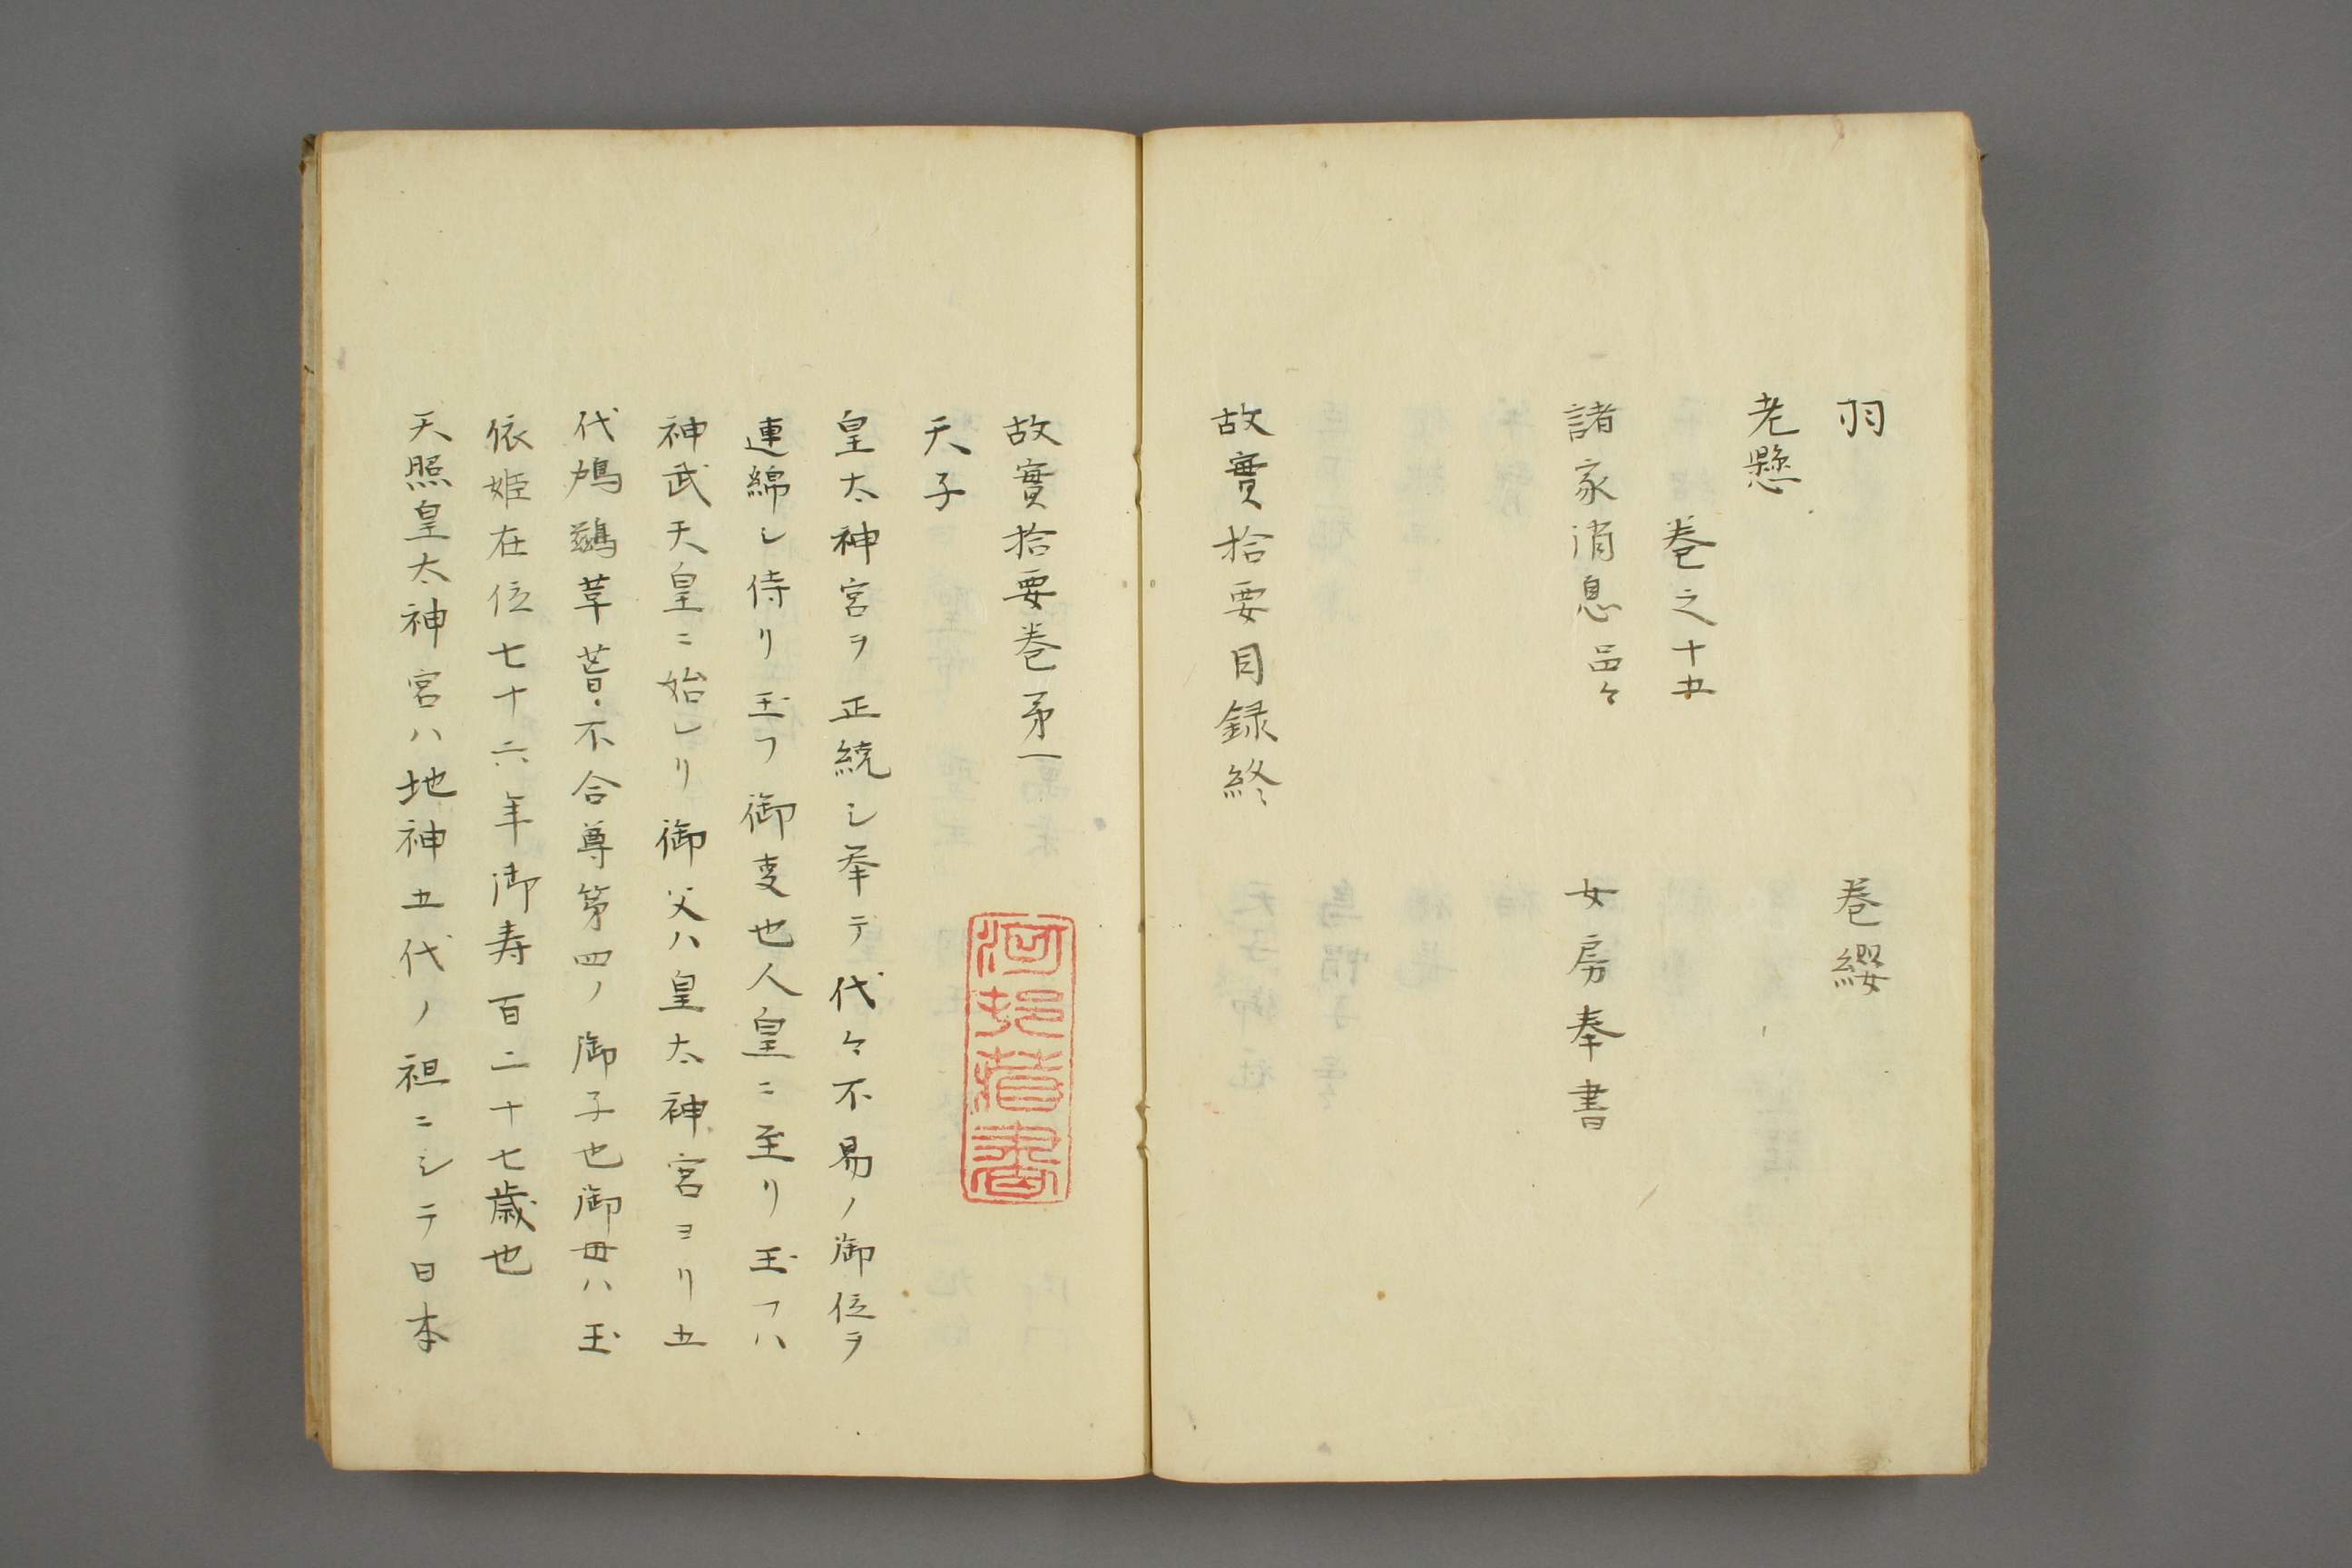 羽　巻纓
老懸
巻之十五
諸家消息品々　女房奉書
故實拾要目録終
故實拾要巻第一
天子
皇太神宮ヲ正統シ奉テ代々不易ノ御位ヲ
連綿シ侍リ玉フ御叓也人皇ニ至リ玉フハ
神武天皇ニ始レリ御父ハ皇太神宮ヨリ五
代鸕鷀草葺不合尊第四ノ御子也御母ハ玉
依姫在位七十六年御寿百二十七歳也
天照皇太神宮ハ地神五代ノ祖ニシテ日本